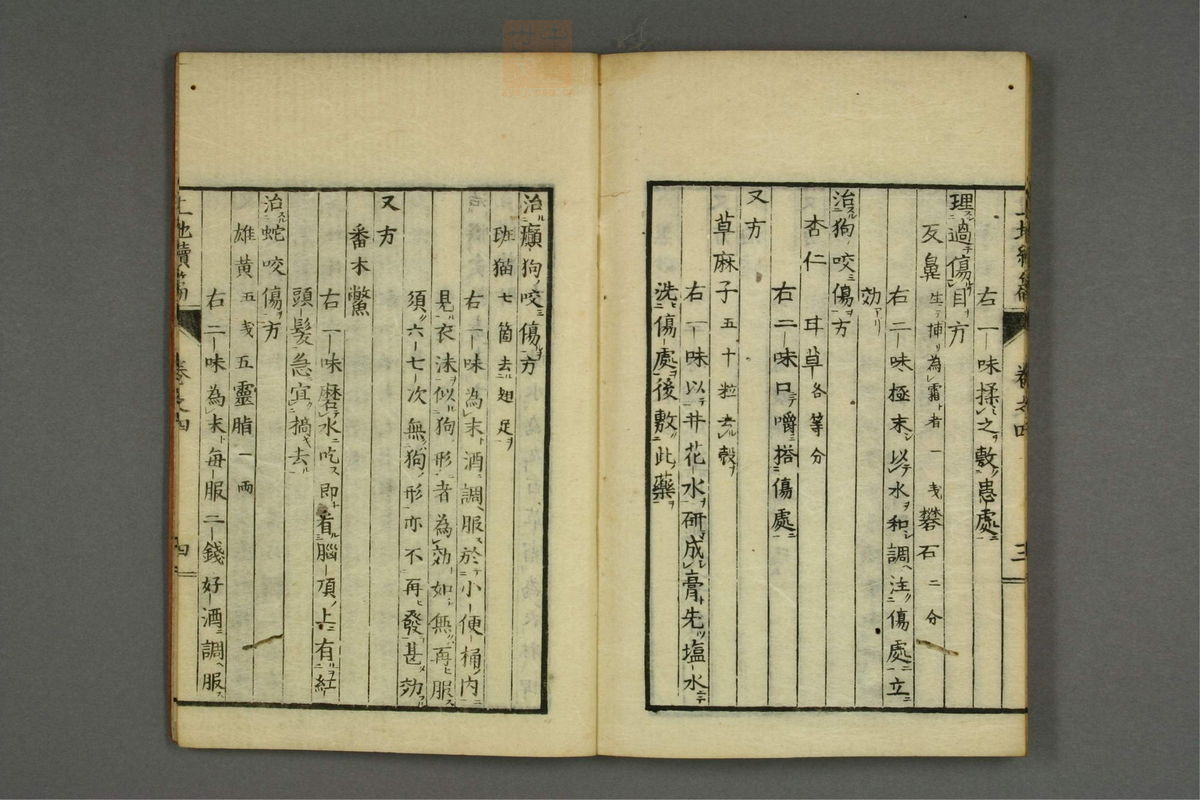 右一味揉之敷患處
理過傷目方
反鼻生ニテ押リ為霜ト者一戔礬石二分
右二味極末以水和調注傷處立
効アリ
治狗咬傷方
杏仁 耳草各等分
右二味口嚼搭傷處
又方
草麻子五十粒去殼
右一味以井花水研成膏先塩水
洗傷處後敷此藥
三
治癲狗咬傷方
斑猫七箇去翅足
右一味為末酒調服於小便桶内
見衣沫似狗形者為効如無再服
須六七次無狗形亦不再發甚効
又方
番木鱉
右一味磨水吃即看腦頂上有紅
頭髮急宜搞去
治蛇咬傷方
雄黄五戔五靈脂一兩
右二味為末每服二錢好酒調服
卷之四
四